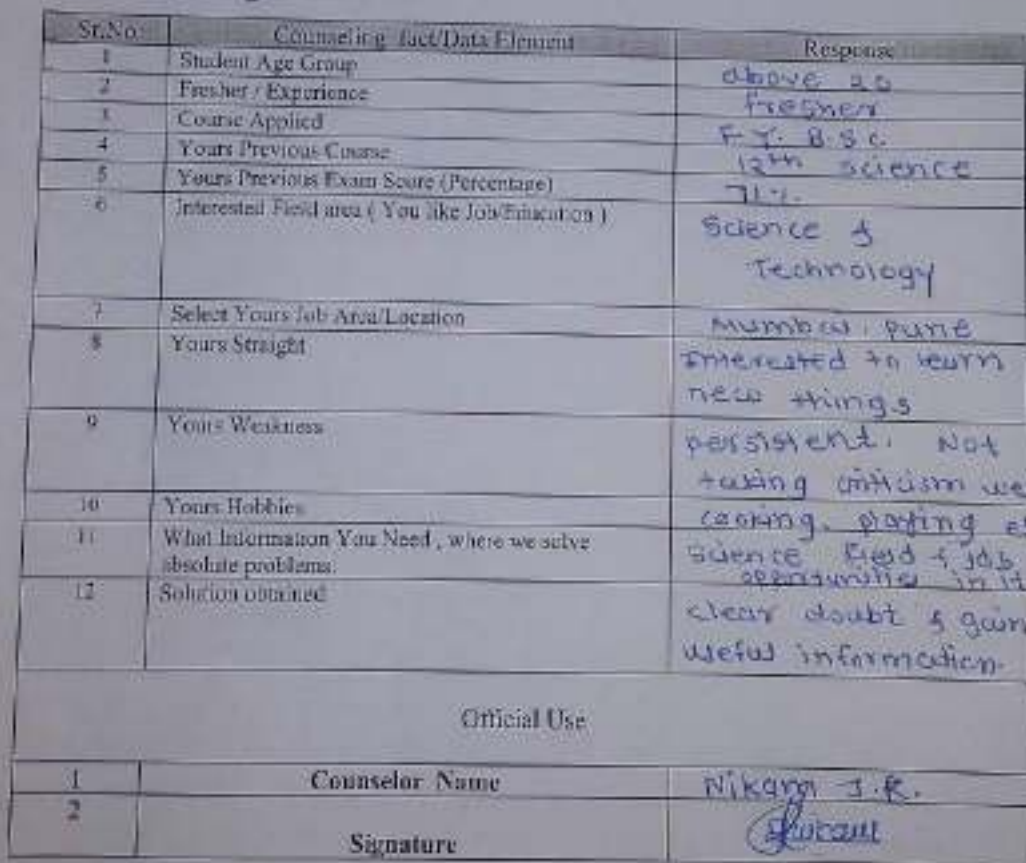 Sr.No. Counseling fact/Data Element Response
1 Student Age Group above 20
2 Fresher / Experience fresher
3 Course Applied F.Y. B.Sc.
4 Yours Previous Course 12th science
5 Yours Previous Exam Score (Percentage) 71%.
6 Interested Field area ( You like Job/Education ) Science &
Technology
7 Select Yours Job Area/Location Mumbai, pune
8 Yours Straight Interested to learn
new things
9 Yours Weakness persistent. Not
taking criticism we
10 Yours Hobbies cooking, playing e
11 What Information You Need , where we solve science field & job
absolute problems. opportunities in it
12 Solution obtained clear doubt & gain
useful information.
Official Use
1 Counselor Name Nikam J.R.
2
Signature